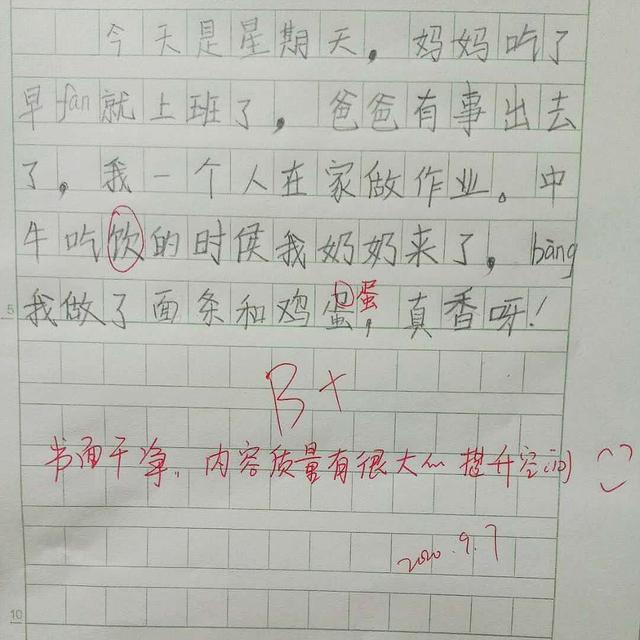 今天是星期天，妈妈吃了
早fàn就上班了，爸爸有事出去
了，我一个人在家做作业。中
牛吃饮的时侯我奶奶来了，bāng
5 我做了面条和鸡蛋，真香呀！
蛋
B+
书面干净，内容质量有很大的提升空间
2020.9.7
10